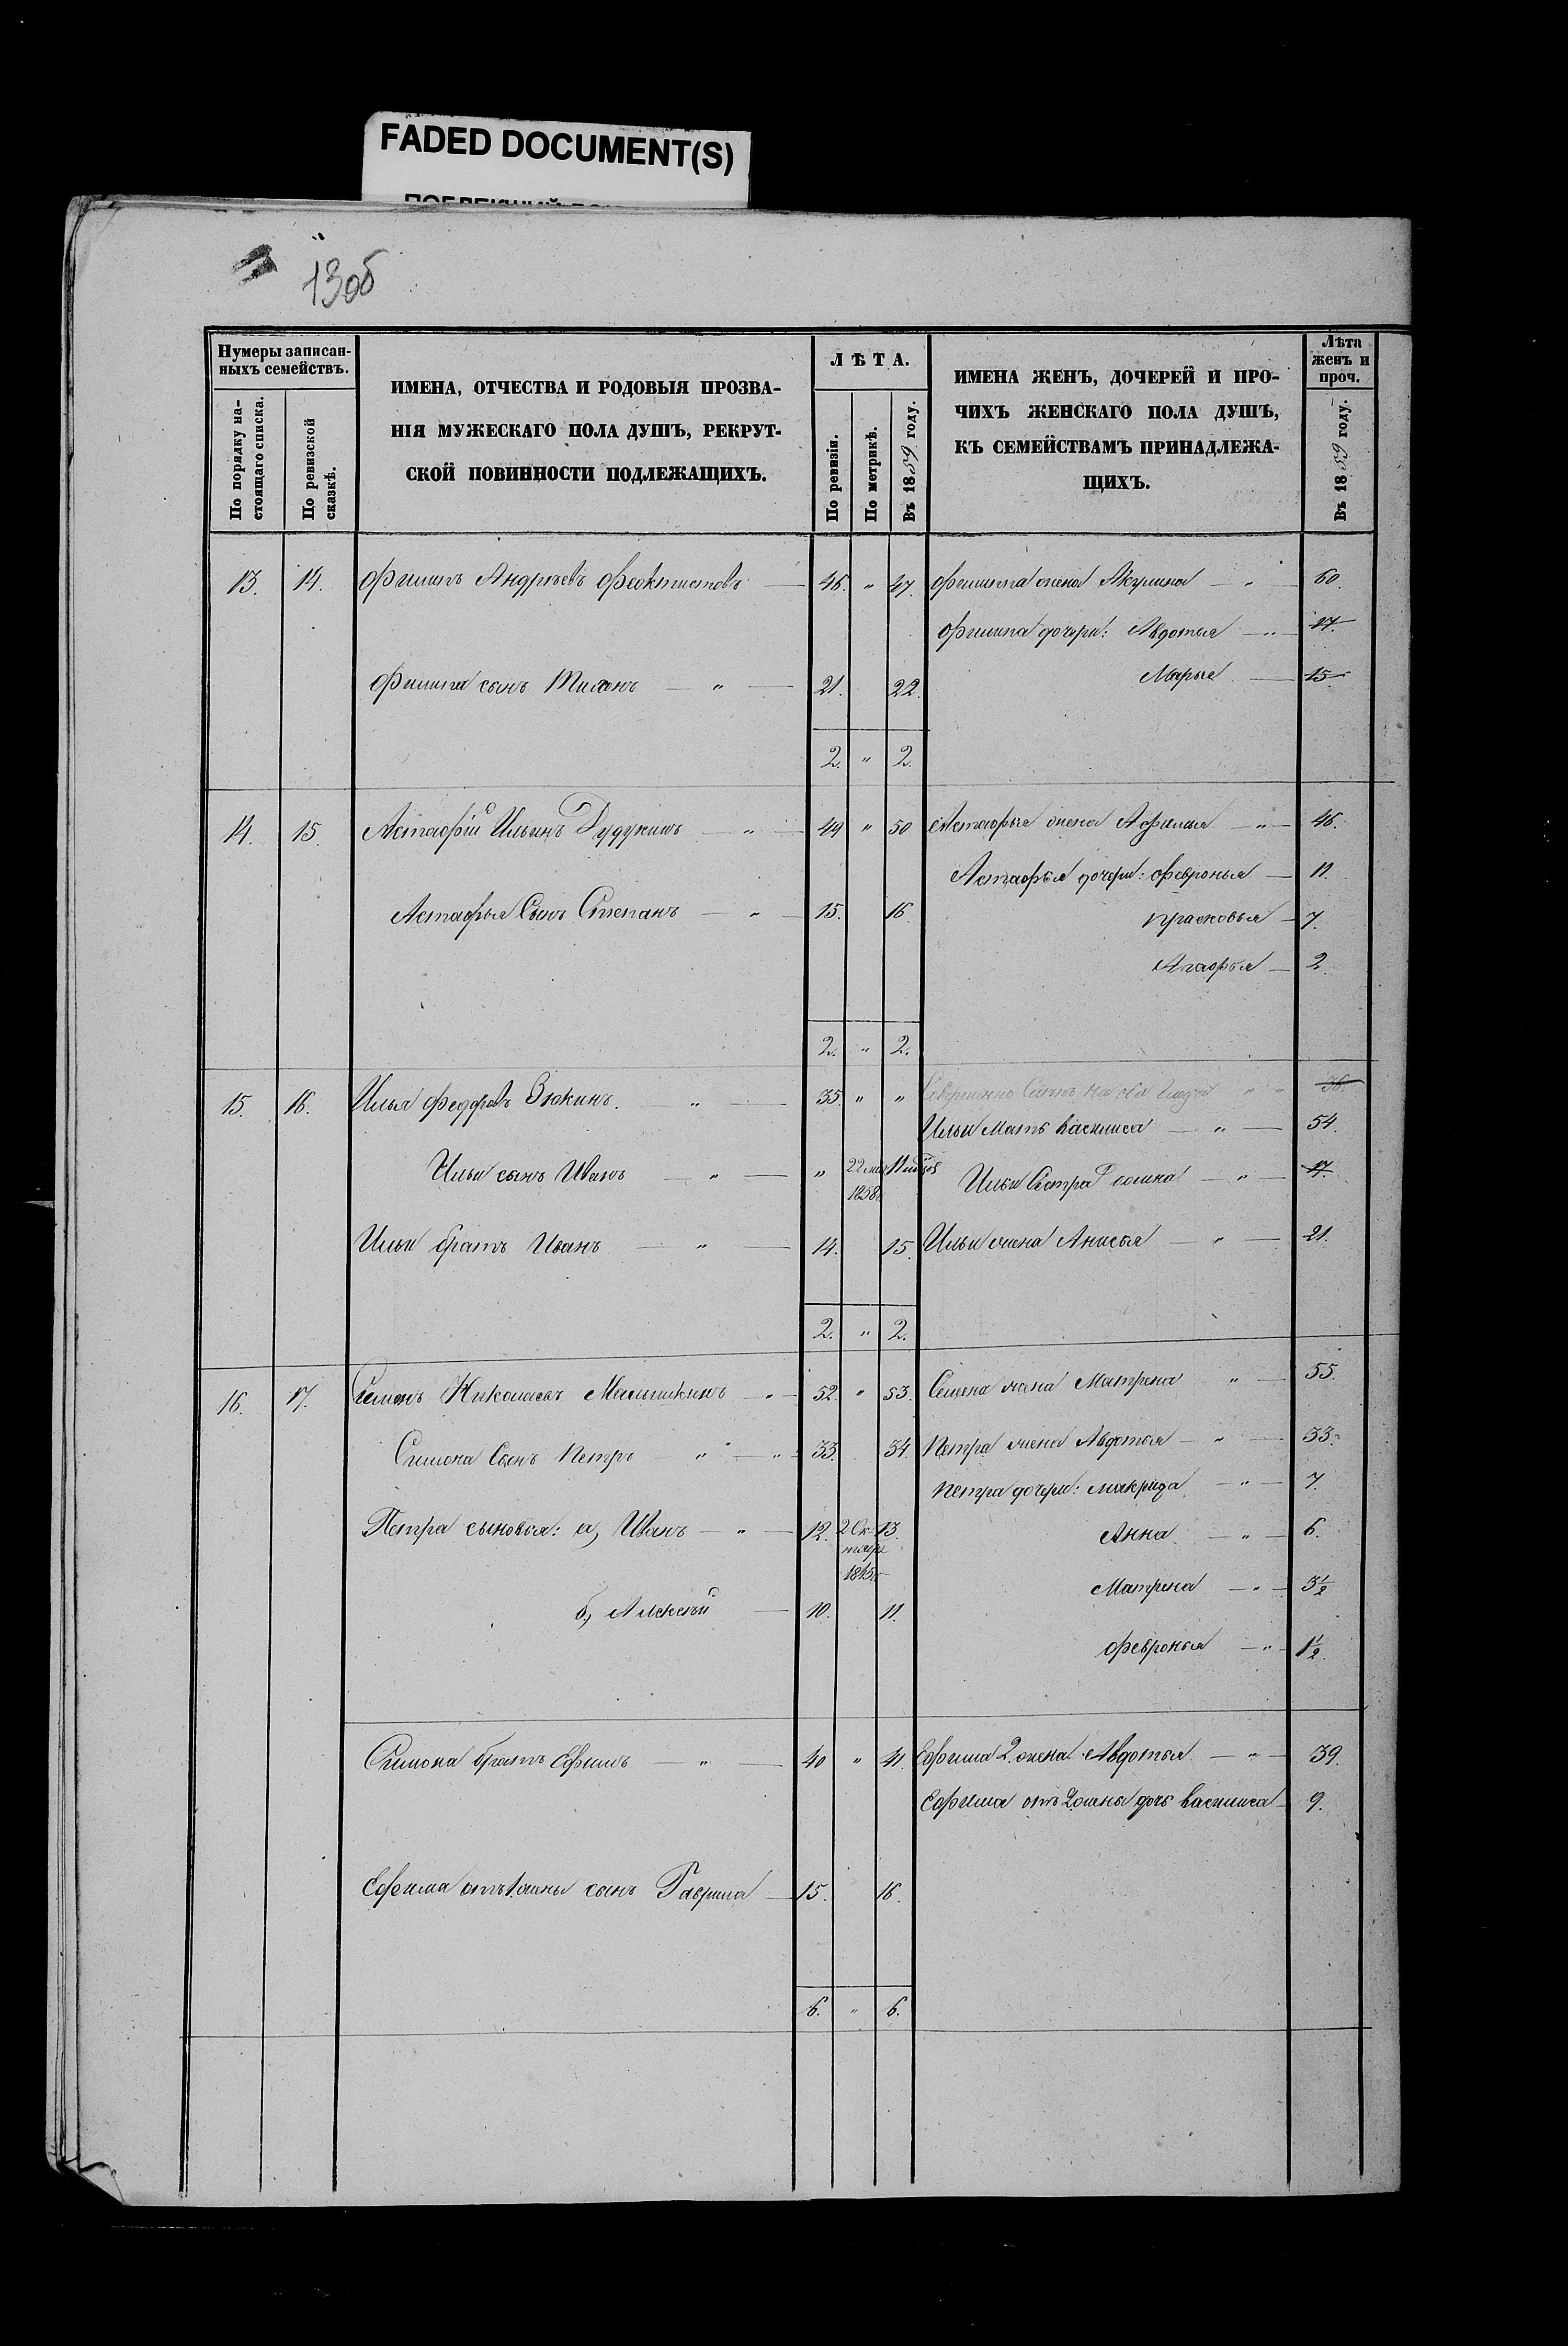 FADED DOCUMENT(S)
13об
Нумеры записан-
ныхъ семействъ.
По порядку на-
стоящаго списка.
По ревизской
сказкѣ.
ИМЕНА, ОТЧЕСТВА И РОДОВЫЯ ПРОЗВА-
НІЯ МУЖЕСКАГО ПОЛА ДУШЪ, РЕКРУТ-
СКОЙ ПОВИННОСТИ ПОДЛЕЖАЩИХЪ.
ЛѢТА.
По ревизіи.
По метрикѣ.
Въ 1859 году.
ИМЕНА ЖЕНЪ, ДОЧЕРЕЙ И ПРО-
ЧИХЪ ЖЕНСКАГО ПОЛА ДУШЪ,
КЪ СЕМЕЙСТВАМЪ ПРИНАДЛЕЖА-
ЩИХЪ.
Лѣта
женъ и
проч.
Въ 1859 году.
13. 14. Филипъ Андреевъ Феоктистовъ — 46. " 47. Филипа жена Акулина — " 60.
Филипа дочери: Авдотья — " — 17.
Филипа сынъ Тихонъ — " — 21. 22. Марья — 15.
2. " 2.
14. 15. Астафій Ильинъ Дудукинъ — " — 49 " 50 Астафья жена Афимья — " — 46.
Астафья дочери: Февронья — 11.
Астафья Сынъ Степанъ — " — 15. 16. Прасковья — 7.
Агафья — 2.
2. " 2.
15. 16. Илья Федоровъ Зюкинъ. — " — 35. " " " " 36.
Ильи Мать Василиса — " — 54.
Ильи сынъ Иванъ — " — " 22 1858 Ильи Сестра — " — 17.
Ильи братъ Иванъ — " — 14. 15. Ильи жена Анисья — " — 21.
2. " 2.
16. 17. Симонъ Николаевъ Малышкинъ — " — 52. " 53. Семена жена Матрена — " — 55.
Симона Сынъ Петръ — " — " — 33. 34. Петра жена Авдотья — " — 33.
Петра дочери: Макрида — " — 7.
Петра сыновья: а, Иванъ — " — 12. 2 Ок-тября 1845г. 13. Анна — " — 6.
Матрена — " — 3½
б, Алексѣй — 10. 11.
Февронья — " — 1½.
Симона братъ Ефимъ — " — 40 " 41. Ефима 2. жена Авдотья — " — 39.
Ефима отъ 2 жены дочь Василиса — 9.
Ефима отъ 1 жены сынъ Гаврила — 15. 16.
6. " 6.